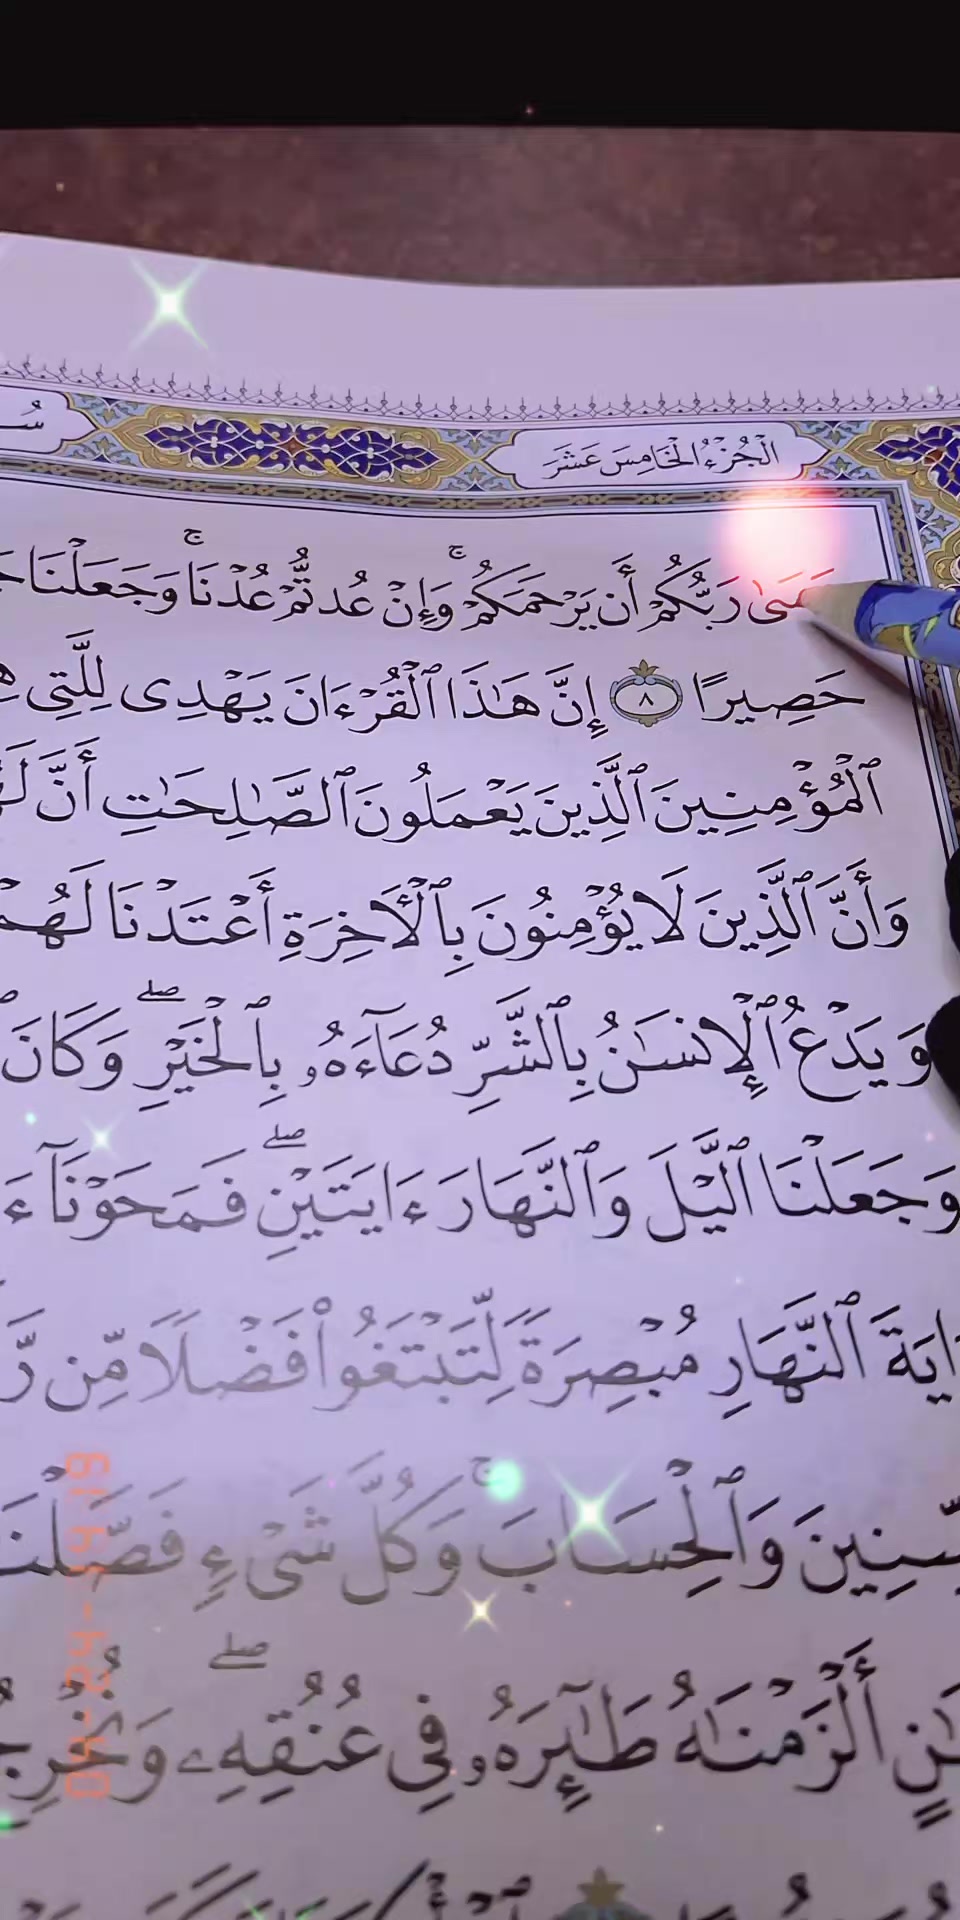 الْجُزْءُ الْخَامِسَ عَشَرَ
عَسَىٰ رَبُّكُمْ أَن يَرْحَمَكُمْ ۚ وَإِنْ عُدتُّمْ عُدْنَا ۚ وَجَعَلْنَا
حَصِيرًا ٨ إِنَّ هَـٰذَا ٱلْقُرْءَانَ يَهْدِى لِلَّتِى
ٱلْمُؤْمِنِينَ ٱلَّذِينَ يَعْمَلُونَ ٱلصَّـٰلِحَـٰتِ أَنَّ
وَأَنَّ ٱلَّذِينَ لَا يُؤْمِنُونَ بِٱلْأَخِرَةِ أَعْتَدْنَا لَهُمْ
وَيَدْعُ ٱلْإِنسَـٰنُ بِٱلشَّرِّ دُعَآءَهُۥ بِٱلْخَيْرِ ۖ وَكَانَ
وَجَعَلْنَا ٱلَّيْلَ وَٱلنَّهَارَ ءَايَتَيْنِ ۖ فَمَحَوْنَآ
ءَايَةَ ٱلنَّهَارِ مُبْصِرَةً لِّتَبْتَغُوا۟ فَضْلًا مِّن
وَٱلْحِسَابَ ۚ وَكُلَّ شَىْءٍ
أَلْزَمْنَـٰهُ طَـٰٓئِرَهُۥ فِى عُنُقِهِۦ ۖ وَنُخْرِجُ
04-24-19:19